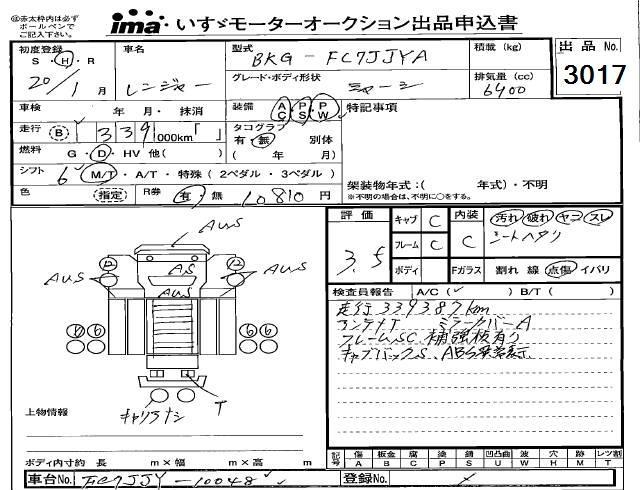 ◎赤太枠内は必ず
ボールペンで
ご記入下さい。
ima いすゞモーターオークション出品申込書
初度登録 車名 型式 BKG-FC7JJYA 積載 (kg) 出品 No.
S・H・R
20/1月 レンジャー グレード・ボディ形状 シャーシ 排気量 (cc) 6400 3017
車検 年・月・抹消 装備 AC・PS・PW 特記事項
走行 B 339 000km「 」 タコグラフ 有・無 別体
燃料 G・D・HV 他( ) ( 年 月)
シフト 6 M/T・A/T・特殊 ( 2ペダル・3ペダル ) 架装物年式:( 年式)・不明
色 指定 R券 有 無 10,810円 ※不明の場合は、不明に○をする。
評価 3.5 キャブ C 内装 C 汚れ 破れ ヤコ スレ
フレーム C シートヘタリ
ボディ Fガラス 割れ 線 点傷 イバリ
AUS
AUS AS AUS
AUS
検査員報告 A/C( ✓ ) B/T( )
走行339387km
ミラーカバーA
フレームSC 補強板有り
キャブバックS、ABS
⑥⑥ ⑥⑥
T
キャリアナシ
上物情報
ボディ内寸約 長 m×幅 m×高 m
記号 傷 A 板金 B 腐 C 塗 P 錆 S 凹凸曲 U 波 W 穴 H 跡 M レツ割 T
車台No. FC7JJY-10048 登録No.